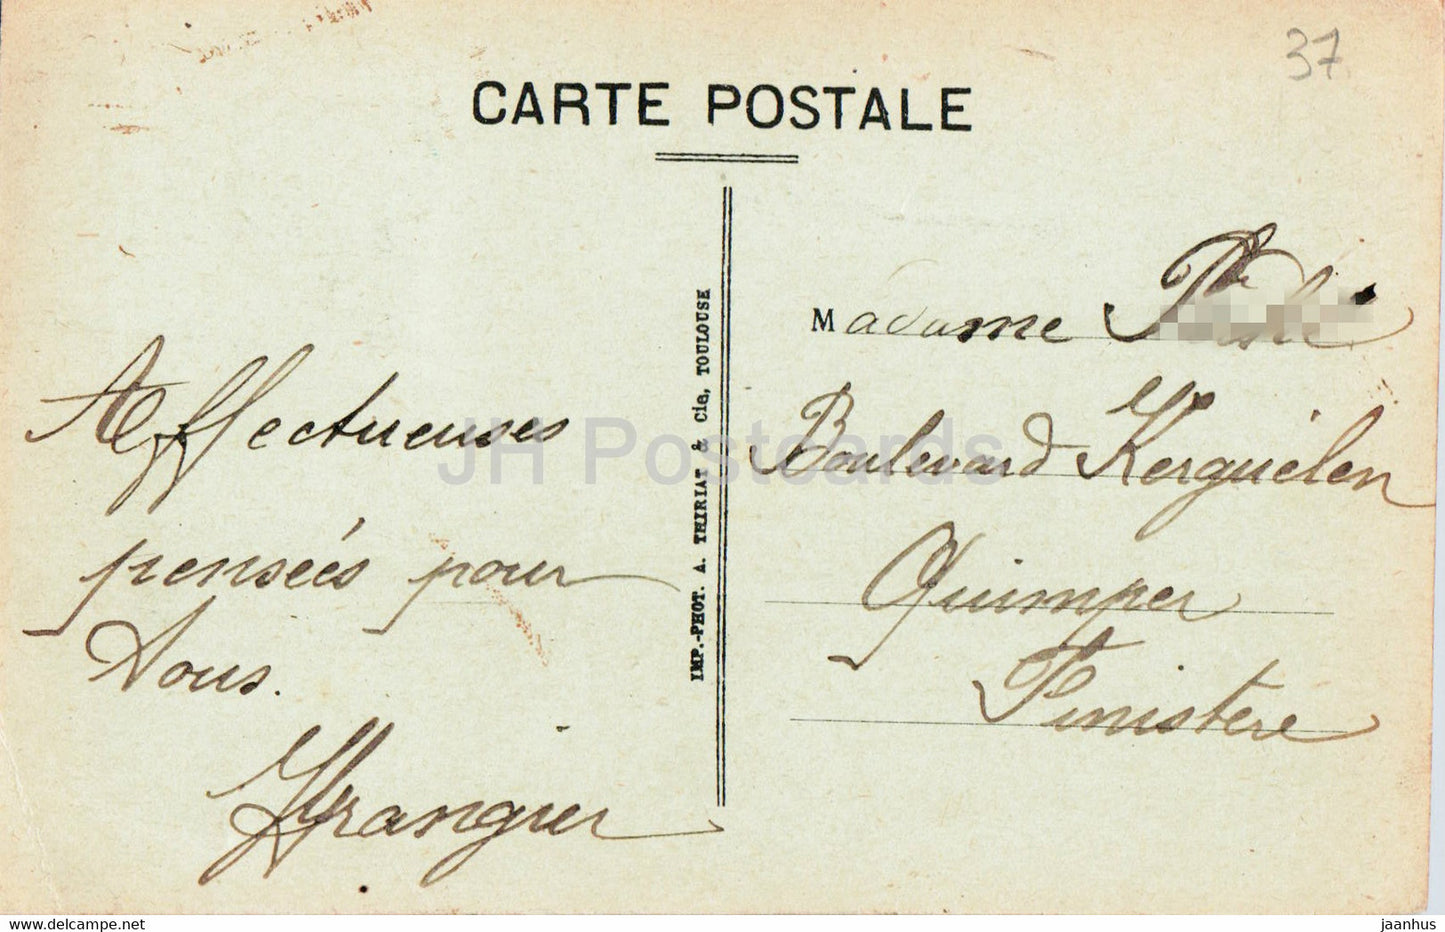 37
CARTE POSTALE
Affectueuses
pensées pour
Vous.
IMP.-PHOT. A. THIRIAT & Cie, TOULOUSE
Madame
Boulevard Kerguélen
Quimper
Finistère
JH Postcards
www.delcampe.net
jaanhus